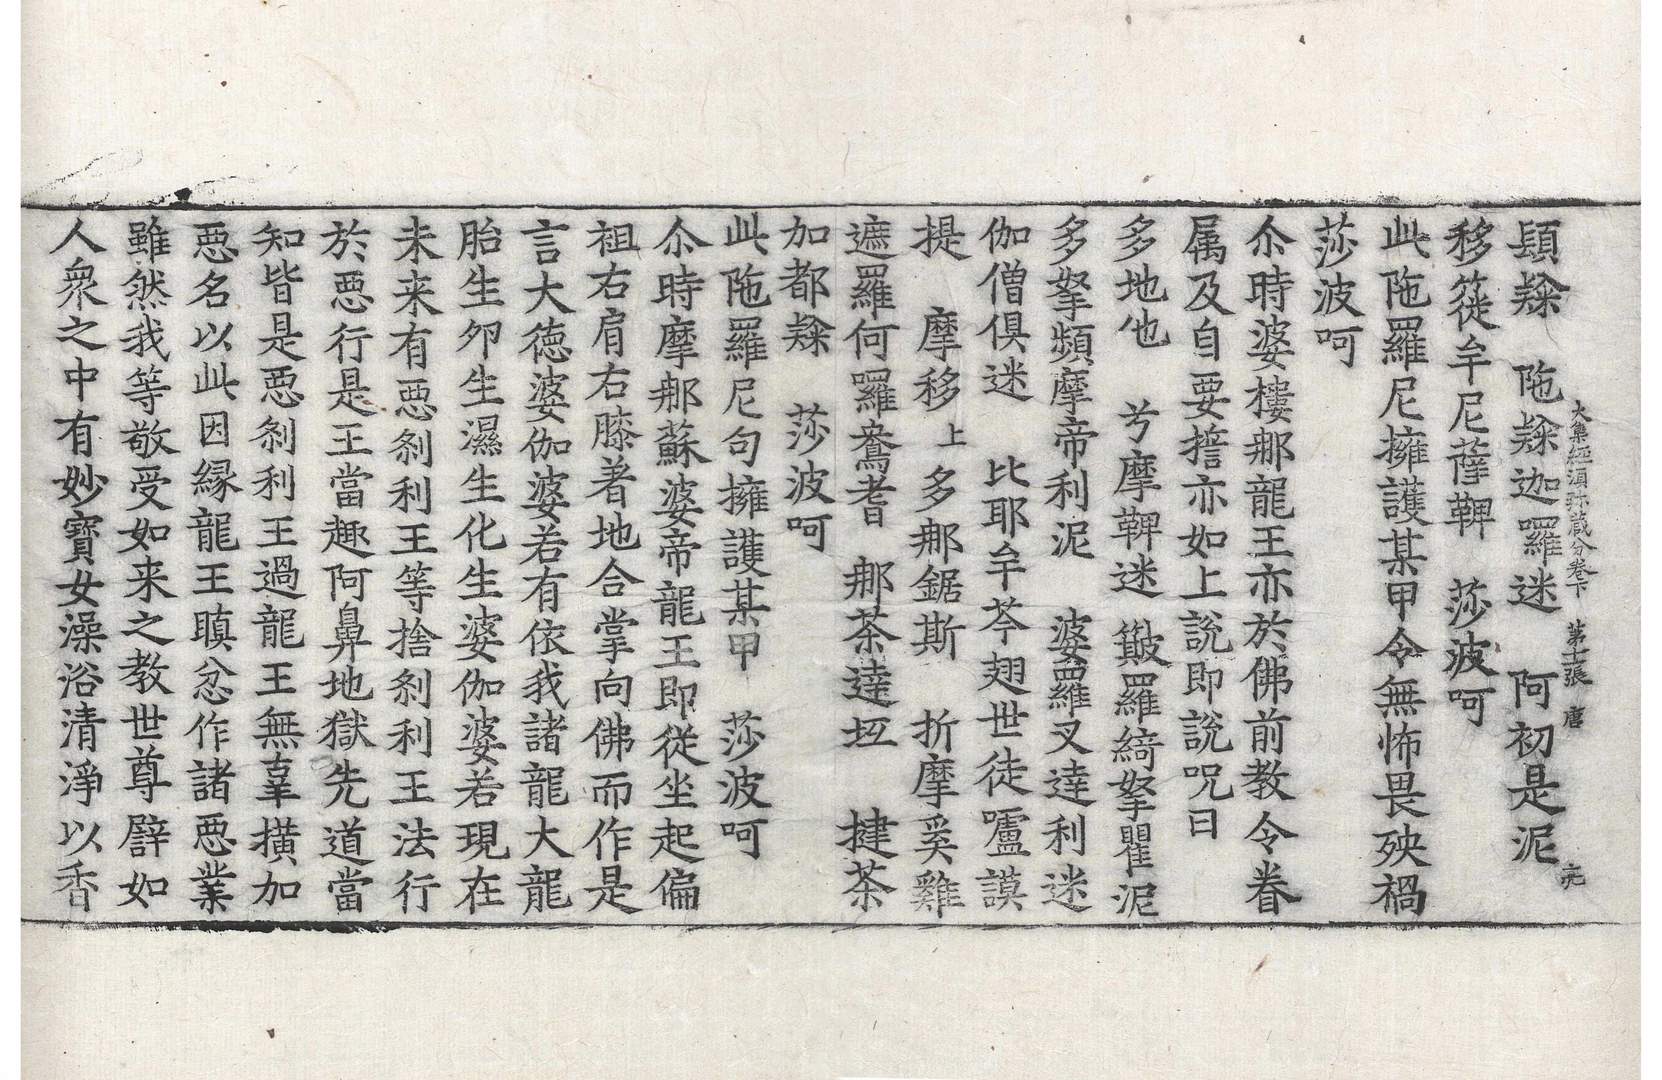 大集經須弥蔵分卷下　第十張　唐
頭㝹　陁㝹迦囉迷　阿初是泥
移簁牟尼薩鞞　莎波呵
此陁羅尼擁護某甲令無怖畏殃禍
莎波呵
尒時婆樓那龍王亦於佛前教令眷
属及自要誓亦如上說即說咒曰
多地也　兮摩鞞迷　羅綺拏瞿泥
多拏頻摩帝利泥　婆羅叉達利迷
伽僧俱迷　比耶牟芩翅世徒嚧謨
提　摩移上多那鋸斯　折摩奚雞
遮羅何囉鴦耆　那荼達㧑　揵荼
加都㝹　莎波呵
此陁羅尼句擁護某甲　莎波呵
尒時摩那蘇婆帝龍王即從坐起偏
袒右肩右膝著地合掌向佛而作是
言大德婆伽婆若有依我諸龍大龍
胎生卵生濕生化生婆伽婆若現在
未来有惡刹利王等捨刹利王法行
於惡行是王當趣阿鼻地獄先道當
知皆是惡刹利王過龍王無辜橫加
惡名以此因縁龍王瞋忿作諸惡業
雖然我等敬受如来之教世尊譬如
人衆之中有妙寶女澡浴清淨以香